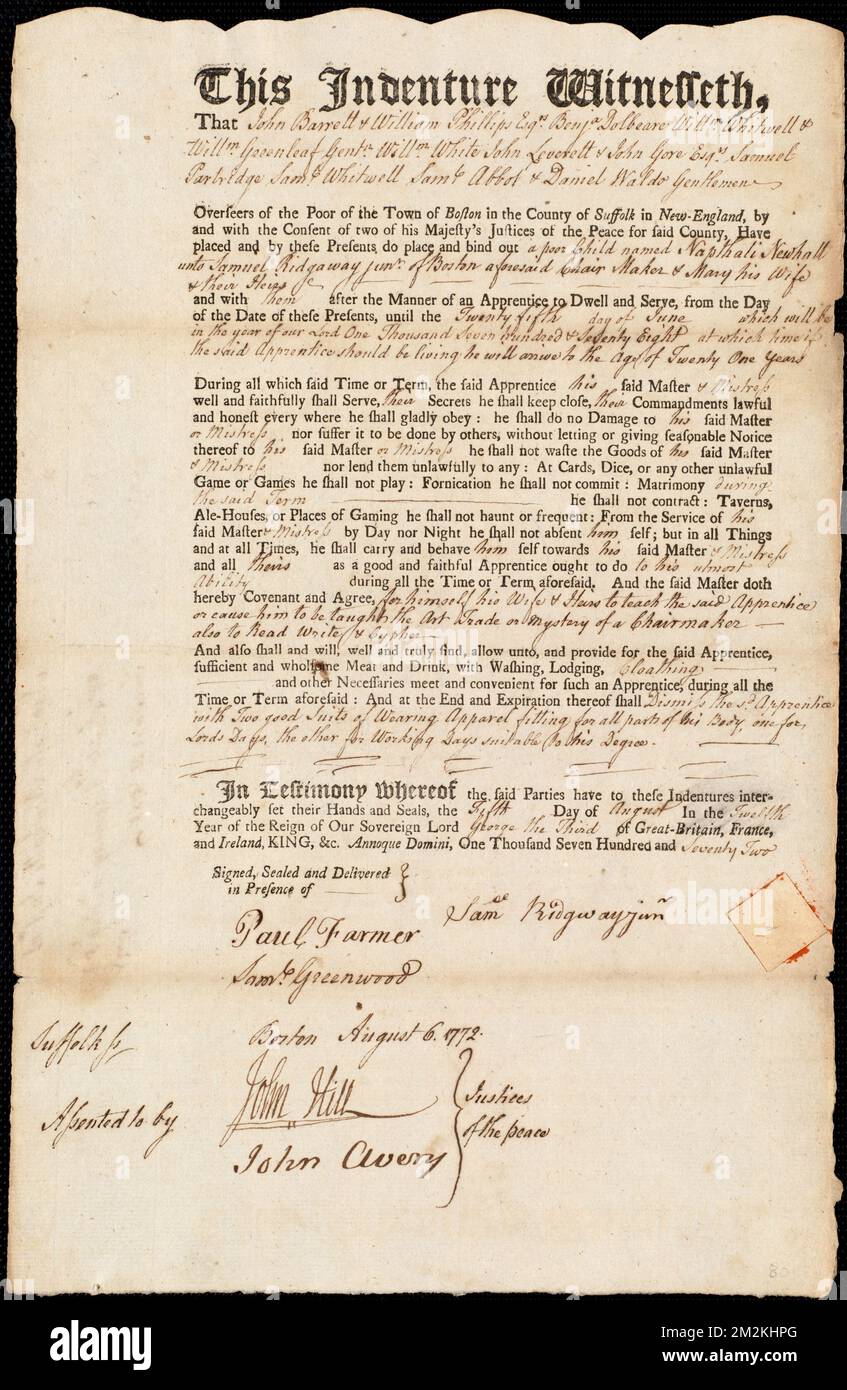 This Indenture Witnesseth,
That John Barrett & William Phillips Esqrs Benja Dolbeare Willm Whitwell &
Willm Greenleaf Gentn Willm White John Leverett & John Gore Esqrs Samuel
Partridge Saml Whitwell Saml Abbot & Daniel Waldo Gentlemen
Overseers of the Poor of the Town of Boston in the County of Suffolk in New-England, by
and with the Consent of two of his Majesty's Justices of the Peace for said County, Have
placed and by these Presents do place and bind out a poor Child named Napthali Newhall
unto Samuel Ridgaway junr of Boston aforesaid Chair Maker & Mary his Wife
& their Heirs
and with them after the Manner of an Apprentice to Dwell and Serve, from the Day
of the Date of these Presents, until the Twenty fifth day of June which will be
in the year of our Lord One Thousand Seven Hundred & Seventy Eight at which time if
the said Apprentice should be living he will arrive to the Age of Twenty One Years
During all which said Time or Term, the said Apprentice his said Master & Mistress
well and faithfully shall Serve, their Secrets he shall keep close, their Commandments lawful
and honest every where he shall gladly obey: he shall do no Damage to his said Master
or Mistress nor suffer it to be done by others, without letting or giving seasonable Notice
thereof to his said Master or Mistress he shall not waste the Goods of his said Master
& Mistress nor lend them unlawfully to any: At Cards, Dice, or any other unlawful
Game or Games he shall not play: Fornication he shall not commit: Matrimony during
the said Term he shall not contract: Taverns,
Ale-Houses, or Places of Gaming he shall not haunt or frequent: From the Service of his
said Master & Mistress by Day nor Night he shall not absent him self; but in all Things
and at all Times, he shall carry and behave him self towards his said Master & Mistress
and all theirs as a good and faithful Apprentice ought to do to his utmost
Ability during all the Time or Term aforesaid. And the said Master doth
hereby Covenant and Agree, for himself his Wife & Heirs to teach the said Apprentice
or cause him to be taught the Art Trade or Mystery of a Chairmaker
also to Read Write & Cypher
And also shall and will, well and truly find, allow unto, and provide for the said Apprentice,
sufficient and wholsome Meat and Drink, with Washing, Lodging, Cloathing
and other Necessaries meet and convenient for such an Apprentice, during all the
Time or Term aforesaid: And at the End and Expiration thereof shall Dismiss the sd Apprentice
with Two good Suits of Wearing Apparel fitting for all parts of his Body, one for
Lords Days, the other for Working Days suitable to his Degree.
In Testimony Whereof the said Parties have to these Indentures inter-
changeably set their Hands and Seals, the Fifth Day of August In the Twelfth
Year of the Reign of Our Sovereign Lord George the Third of Great-Britain, France,
and Ireland, KING, &c. Annoque Domini, One Thousand Seven Hundred and Seventy Two
Signed, Sealed and Delivered
in Presence of
Saml Ridgway junr
Paul Farmer
Saml Greenwood
Suffolk ss Boston August 6. 1772.
Assented to by John Hill Justices
John Avery of the peace
80
alamy
Image ID: 2M2KHPG
www.alamy.com